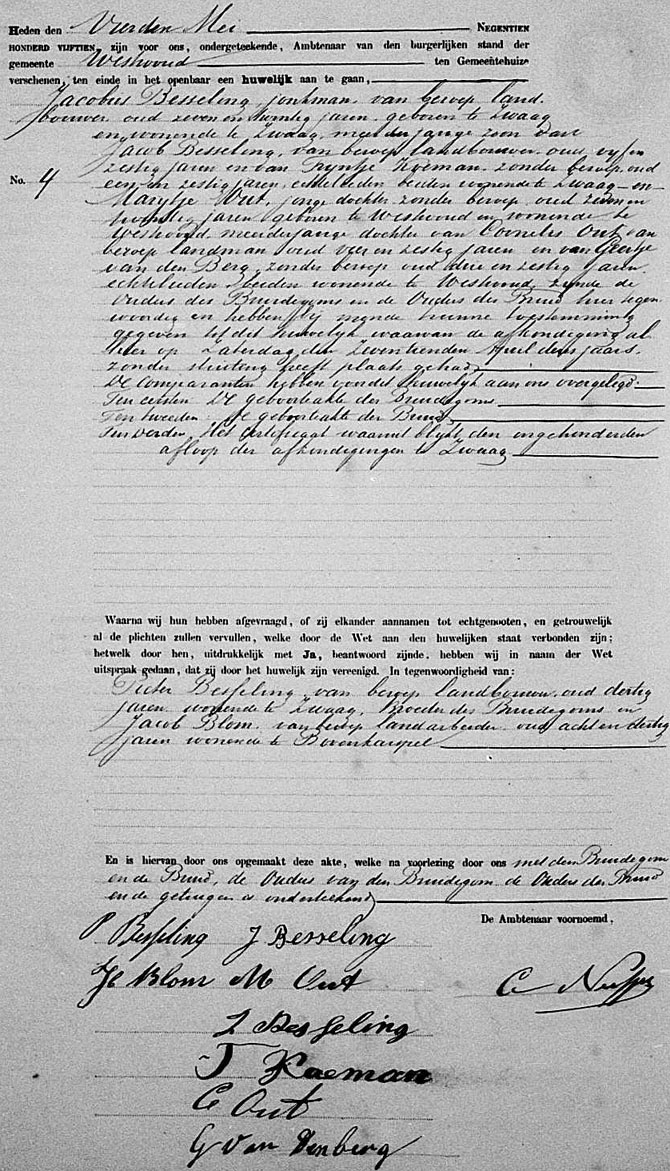 Heden den Vierden Mei NEGENTIEN
HONDERD VIJFTIEN, zijn voor ons, ondergeteekende, Ambtenaar van den burgerlijken stand der
gemeente Westwoud ten Gemeentehuize
verschenen, ten einde in het openbaar een huwelijk aan te gaan,
Jacobus Besseling, jonkman, van beroep land-
bouwer, oud zeven en twintig jaren, geboren te Zwaag
en wonende te Zwaag, meerderjarige zoon van
Jacob Besseling, van beroep landbouwer, oud vijf en
zestig jaren en van Trijntje Koeman, zonder beroep, oud
een en zestig jaren, echtelieden beiden wonende te Zwaag en
No. 4
Marijtje Out, jonge dochter, zonder beroep, oud zeven en
twintig jaren, geboren te Westwoud en wonende te
Westwoud, meerderjarige dochter van Cornelis Out, van
beroep landman, oud vier en zestig jaren en van Geertje
van den Berg, zonder beroep, oud drie en zestig jaren,
echtelieden, beiden wonende te Westwoud, zijnde de
Ouders des Bruidegoms en de Ouders der Bruid hier tegen-
woordig en hebben zij mondeling hunne toestemming
gegeven tot dit huwelijk waarvan de afkondiging al-
hier op Zaterdag den Zeventienden April dezes jaars,
zonder stuiting heeft plaats gehad
De Comparanten hebben voor dit huwelijk aan ons overgelegd:
Ten eersten: De geboorteakte des Bruidegoms
Ten tweeden: De geboorteakte der Bruid
Ten derden: Het certificaat waaruit blijkt den ongehinderden
afloop der afkondigingen te Zwaag
Waarna wij hun hebben afgevraagd, of zij elkander aannamen tot echtgenooten, en getrouwelijk
al de plichten zullen vervullen, welke door de Wet aan den huwelijken staat verbonden zijn;
hetwelk door hen, uitdrukkelijk met Ja, beantwoord zijnde, hebben wij in naam der Wet
uitspraak gedaan, dat zij door het huwelijk zijn vereenigd. In tegenwoordigheid van:
Pieter Besseling, van beroep landbouwer, oud dertig
jaren, wonende te Zwaag, broeder des Bruidegoms en
Jacob Blom, van beroep landarbeider, oud acht en dertig
jaren wonende te Bovenkarspel
En is hiervan door ons opgemaakt deze akte, welke na voorlezing door ons met den Bruidegom
en de Bruid, de Ouders van den Bruidegom de Ouders der Bruid
en de getuigen is onderteekend
De Ambtenaar voornoemd,
P Besseling J Besseling
Jb Blom M Out
J Besseling
T Koeman
C Out
G Van Denberg